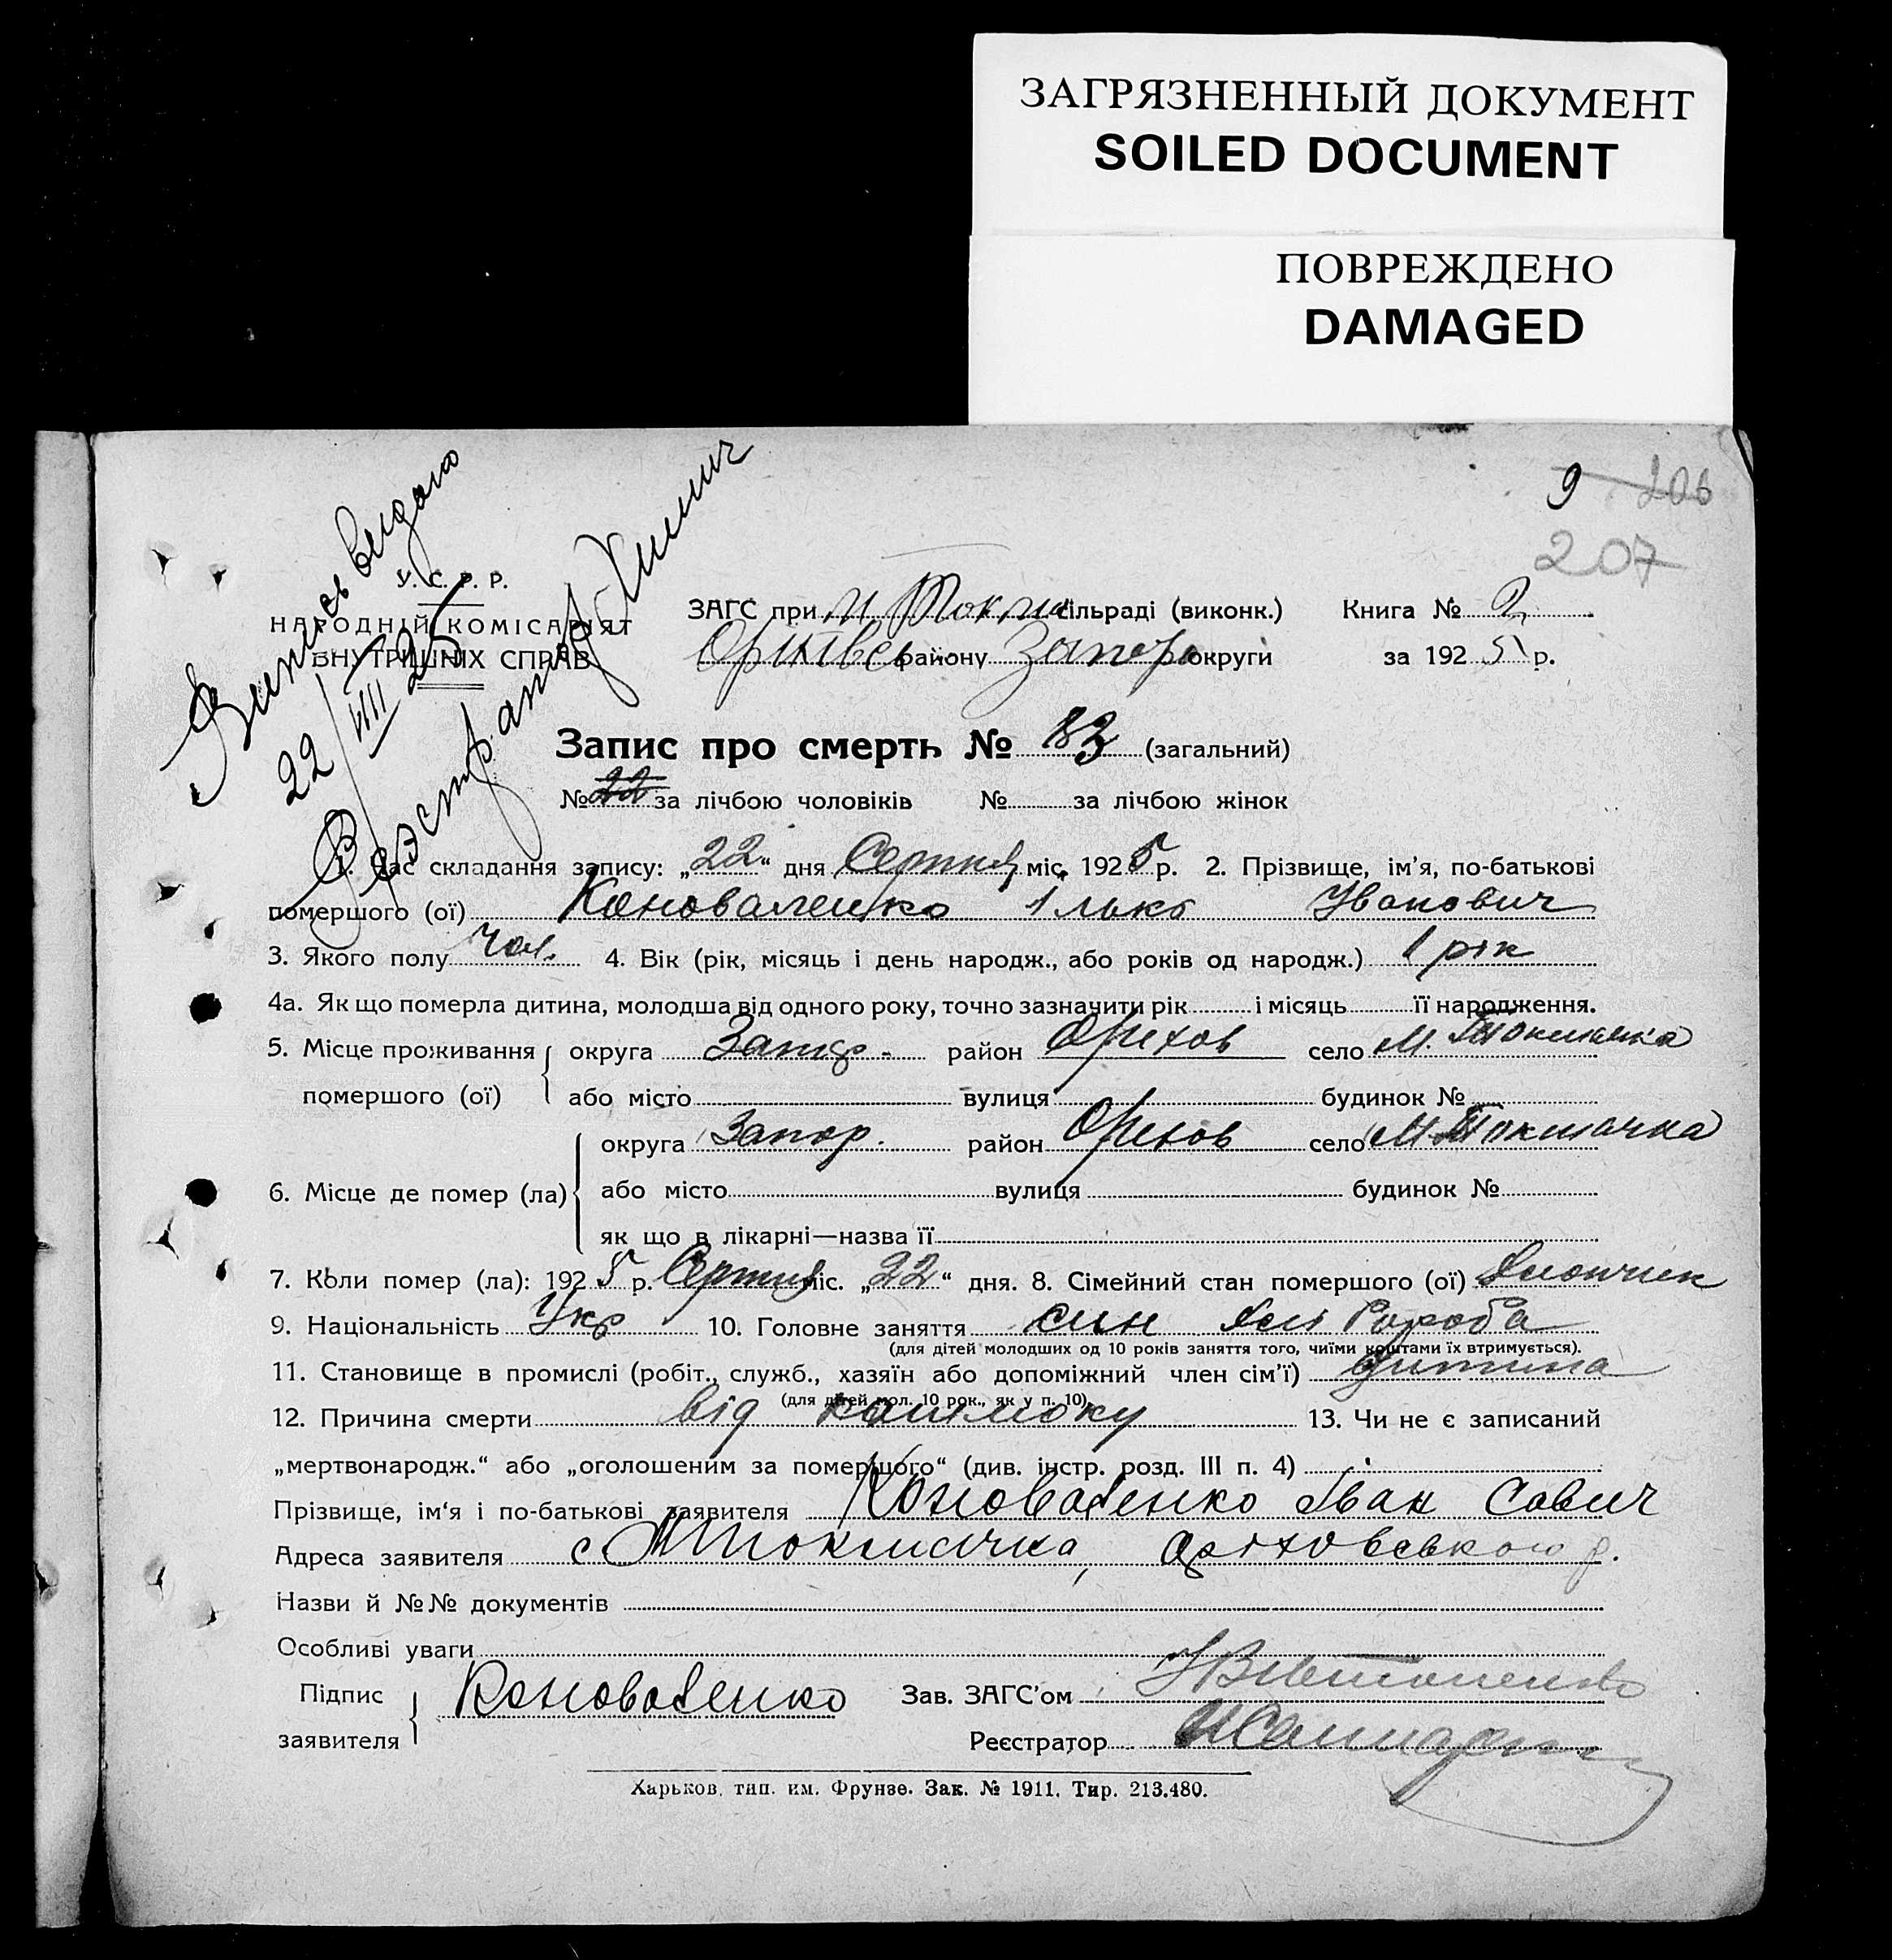 ЗАГРЯЗНЕННЫЙ ДОКУМЕНТ
SOILED DOCUMENT
ПОВРЕЖДЕНО
DAMAGED
9 206
207
Випись видано
22/VIII 25
У. С. Р. Р.
НАРОДНІЙ КОМІСАРІЯТ
ВНУТРІШНІХ СПРАВ
ЗАГС при М Токм сільраді (виконк.) Книга № 2
району Запор округи за 1925 р.
Запис про смерть № 83 (загальний)
№ 22 за лічбою чоловіків № за лічбою жінок
1. Час складання запису: „22“ дня Серпня міс. 1925 р. 2. Прізвище, ім'я, по-батькові
помершого (ої) Коноваленко Ілько Іванович
3. Якого полу чол. 4. Вік (рік, місяць і день народж., або років од народж.) 1 рік
4а. Як що померла дитина, молодша від одного року, точно зазначити рік і місяць її народження.
5. Місце проживання округа Запор. район Оріхов село М. Токмачка
помершого (ої) або місто вулиця будинок №
округа Запор. район Оріхов село М. Токмачка
6. Місце де помер (ла) або місто вулиця будинок №
як що в лікарні—назва її
7. Коли помер (ла): 1925 р. Серпня міс. „22“ дня. 8. Сімейний стан помершого (ої)
9. Національність Укр 10. Головне заняття син
(для дітей молодших од 10 років заняття того, чиїми коштами їх втримується).
11. Становище в промислі (робіт., служб., хазяїн або допоміжний член сім'ї) дитина
(для дітей мол. 10 рок., як у п. 10)
12. Причина смерти від 13. Чи не є записаний
„мертвонародж.“ або „оголошеним за помершого“ (див. інстр. розд. III п. 4)
Прізвище, ім'я і по-батькові заявителя Коноваленко Іван Савич
Адреса заявителя с М Токмачка, Оріховського р.
Назви й №№ документів
Особливі уваги
Підпис Коноваленко Зав. ЗАГС'ом
заявителя Реєстратор
Харьков, тип. им. Фрунзе. Зак. № 1911. Тир. 213.480.